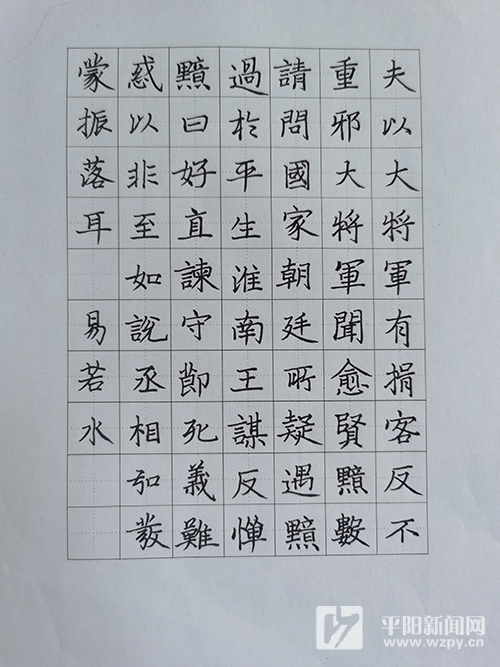 夫以大將軍有揖客反不
重邪大將軍聞愈賢黯數
請問國家朝廷所疑遇黯
過於平生淮南王謀反憚
黯曰好直諫守節死義難
惑以非至如說丞相弘發
蒙振落耳 易若水
平阳新闻网
www.wzpy.cn